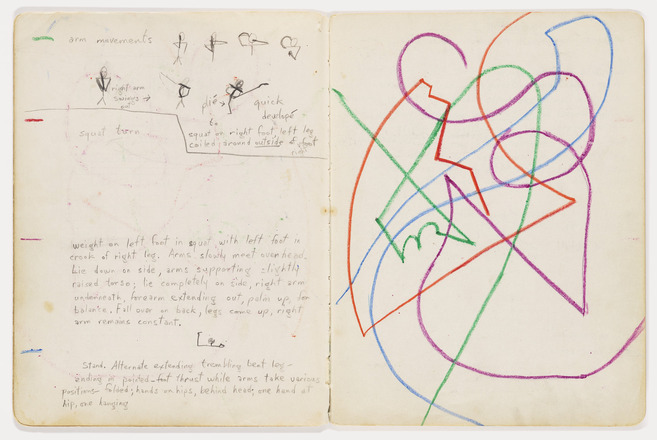 arm movements
right arm
swings →
out
plié → quick
développé
to
squat turn
squat on right foot, left leg
coiled around outside of foot
weight on left foot in squat with left foot in
crook of right leg. Arms slowly meet overhead.
Lie down on side, arms supporting slightly
raised torso; lie completely on side, right arm
underneath, forearm extending out, palm up, for
balance. Fall over on back, legs come up, right
arm remains constant.
Stand. Alternate extending trembling bent leg -
ending in pointed-foot thrust while arms take various
positions - folded; hands on hips, behind head; one hand at
hip, one hanging